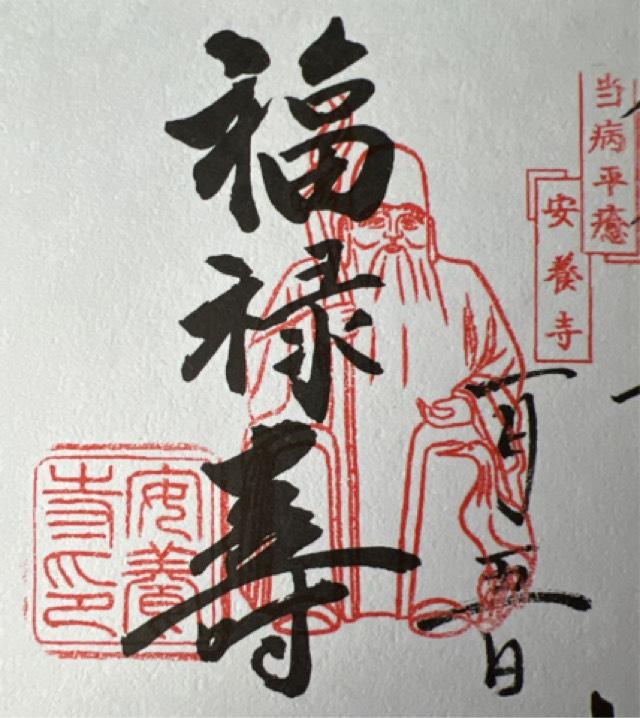 当病平癒
安養寺
一月五日
福禄寿
安養寺印